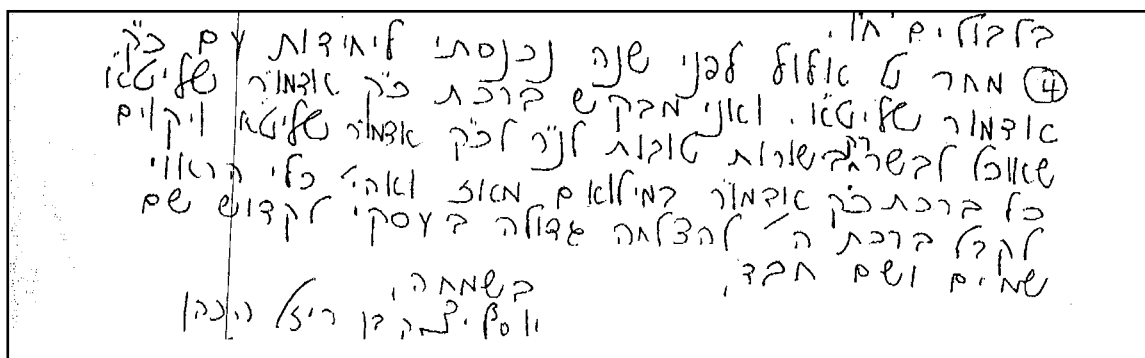 בלבולים ח"ו.
④ מחר ט אלול לפני שנה נכנסתי ליחידות עם כ"ק
אדמור שליט"א. ואני מבקש ברכת כ"ק אדמו"ר שליט"א
שאוכל לבשר רק בשורות טובות לנ"ר לכ"ק אדמו"ר שליטא ויקוים
כל ברכת כ"ק אדמו"ר במילואם מאז ואהי' כלי הראוי
לקבל ברכת ה' להצלחה גדולה בעסקי לקדוש שם
שמים ושם חבד,
בשמחה,
יוסף יצחק בן רייזל הכהן